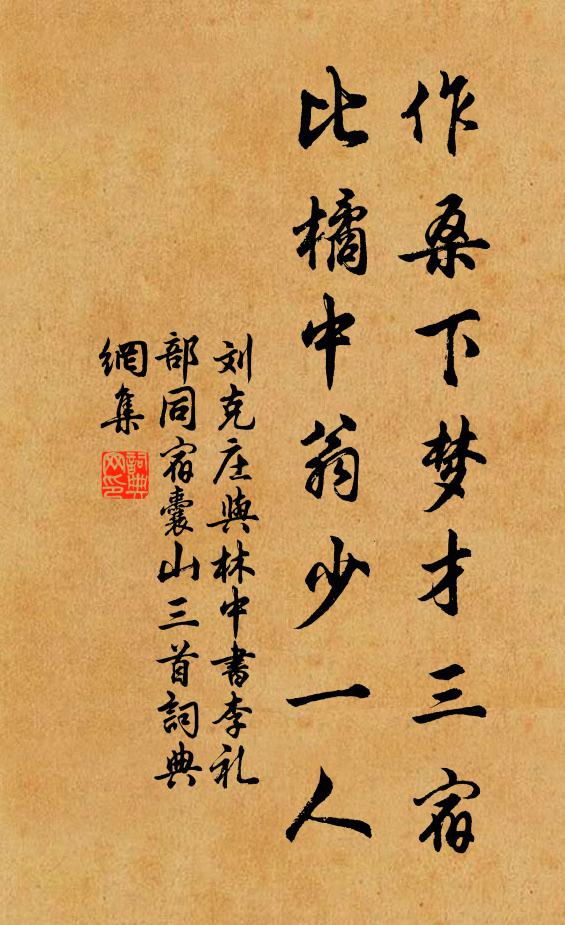 作桑下梦才三宿
比橘中翁少一人
刘克庄與林中書李礼
部同宿囊山三首詞典
網集
詞典
网印